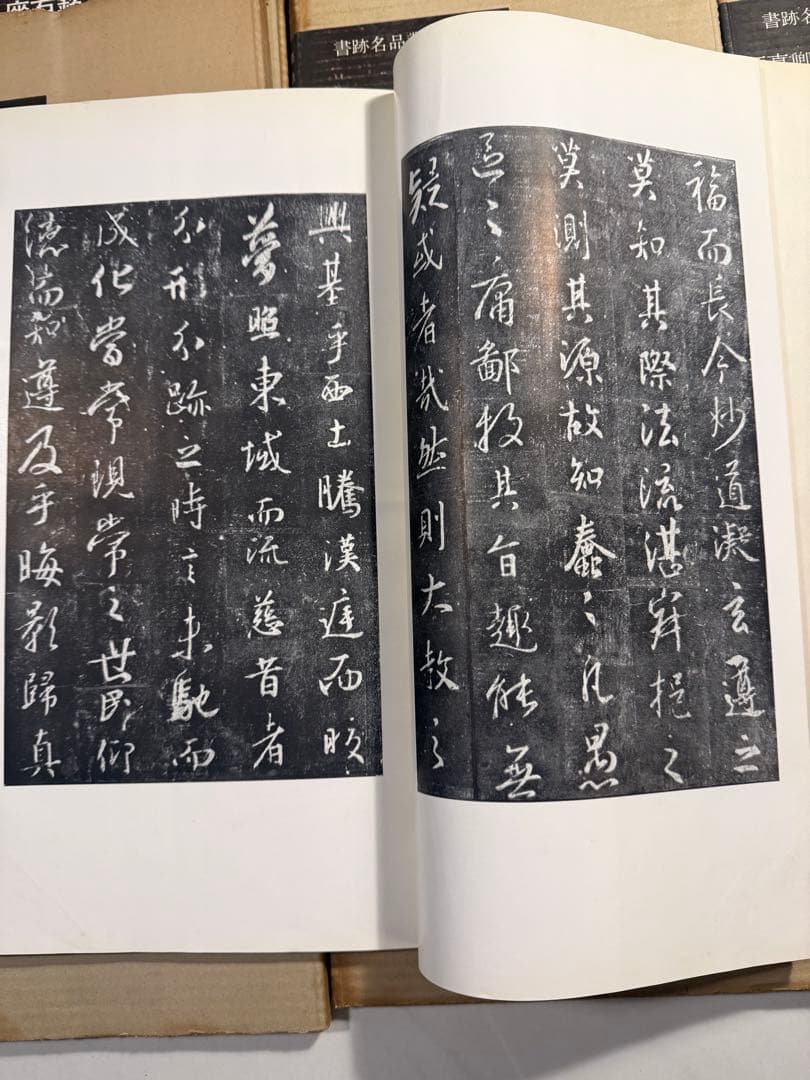 書跡名品
書跡名
福而長今妙道凝玄遵之
莫知其際法流湛寂挹之
莫測其源故知蠢々凡愚
區々庸鄙投其旨趣能無
疑或者哉然則大教之
興基乎西土騰漢庭而皎
夢照東域而流慈昔者
分形分跡之時言未馳而
成化當常現常之世民仰
德而知遵及乎晦影歸真